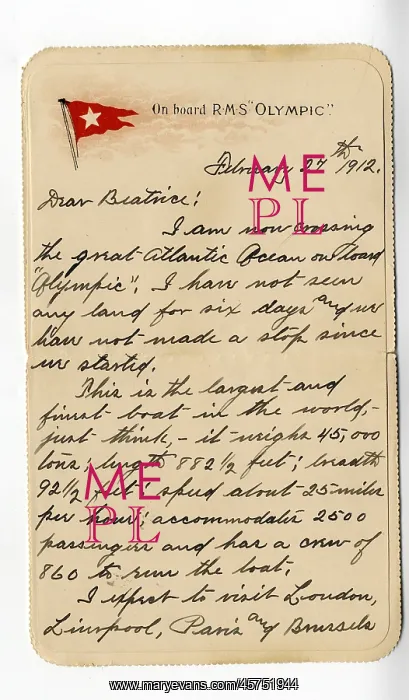 On board R·M·S "OLYMPIC".
February 27th 1912.
Dear Beatrice!
I am now crossing
the great Atlantic Ocean on board
"Olympic". I have not seen
any land for six days and we
have not made a stop since
we started.
This is the largest and
finest boat in the world,-
just think, - it weighs 45,000
tons; length 882 1/2 feet; breadth
92 1/2 feet; speed about 25 miles
per hour; accommodates 2500
passengers and has a crew of
860 to run the boat.
I expect to visit London,
Liverpool, Paris and Brussels
ME
PL
ME
PL
www.maryevans.com/45751944